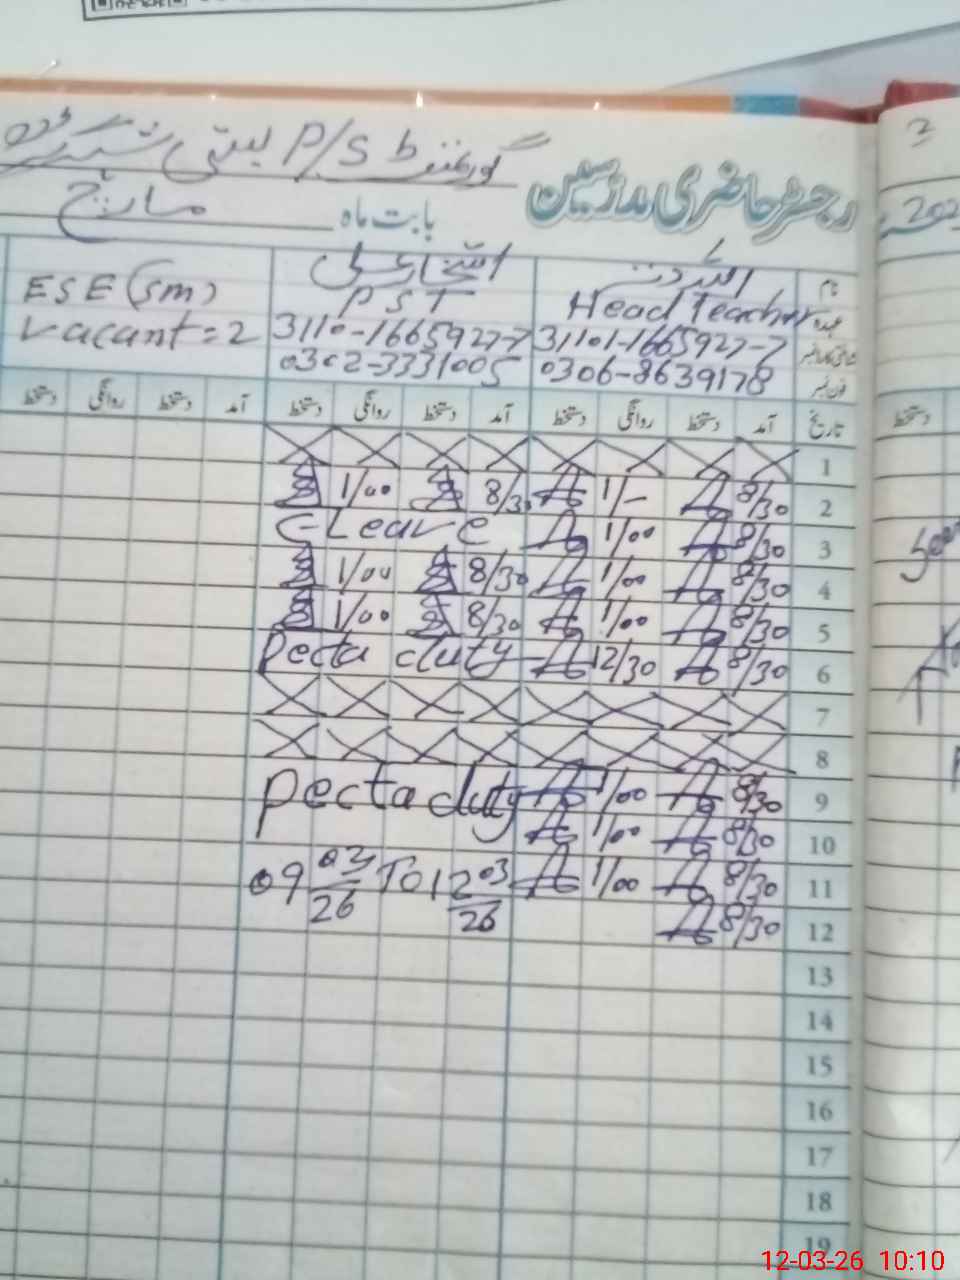 گورنمنٹ P/S بستی
رجسٹر حاضری مدرسین
بابت ماہ مارچ
نام
عہدہ Head Teacher PST ESE (sm)
شناختی کارڈ نمبر 31101-1665927-7 3110-1665927-7 vacant = 2
فون نمبر 0306-8639178 0302-3331005
تاریخ آمد دستخط روانگی دستخط آمد دستخط روانگی دستخط آمد دستخط روانگی دستخط
1
2 8/30 1/- 8/30 1/00
3 8/30 1/00 C-Leave
4 8/30 1/00 8/30 1/00
5 8/30 1/00 8/30 1/00
6 8/30 12/30 Pecta duty
7
8
9 8/30 1/00 Pecta duty
10 8/30 1/00
11 8/30 1/00 09 03/26 TO 12 03/26
12 8/30
13
14
15
16
17
18
19
دستخط
12-03-26 10:10